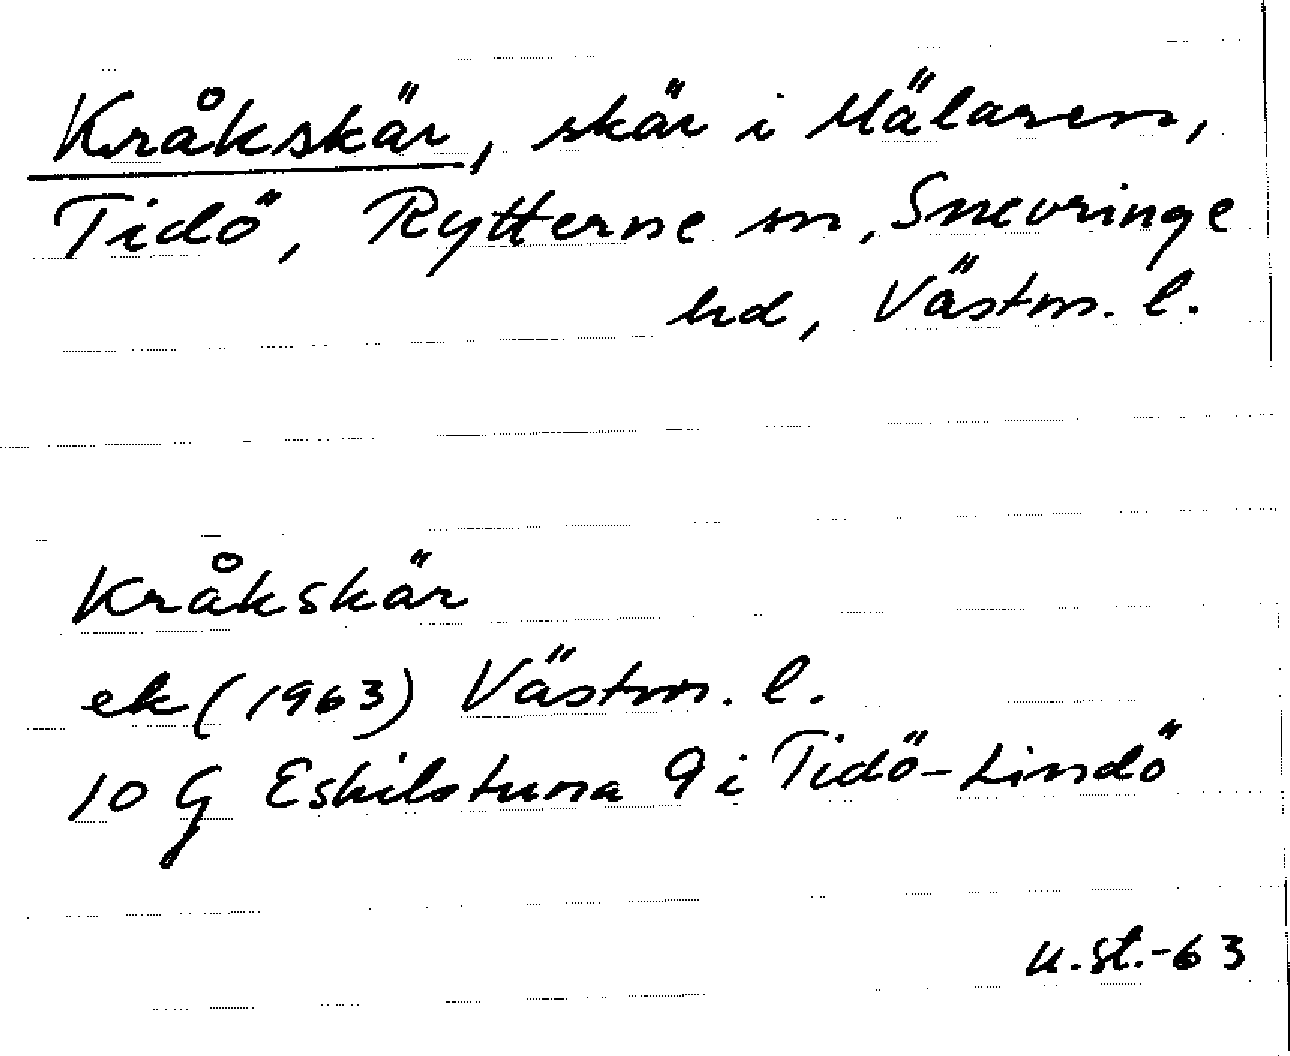 Kråkskär, skär i Mälaren,
Tidö, Rytterne sn, Snevringe
hd, Västm. l.
Kråkskär
ek (1963) Västm. l.
10 G Eskilstuna 9 i Tidö-Lindö
u.st.-63